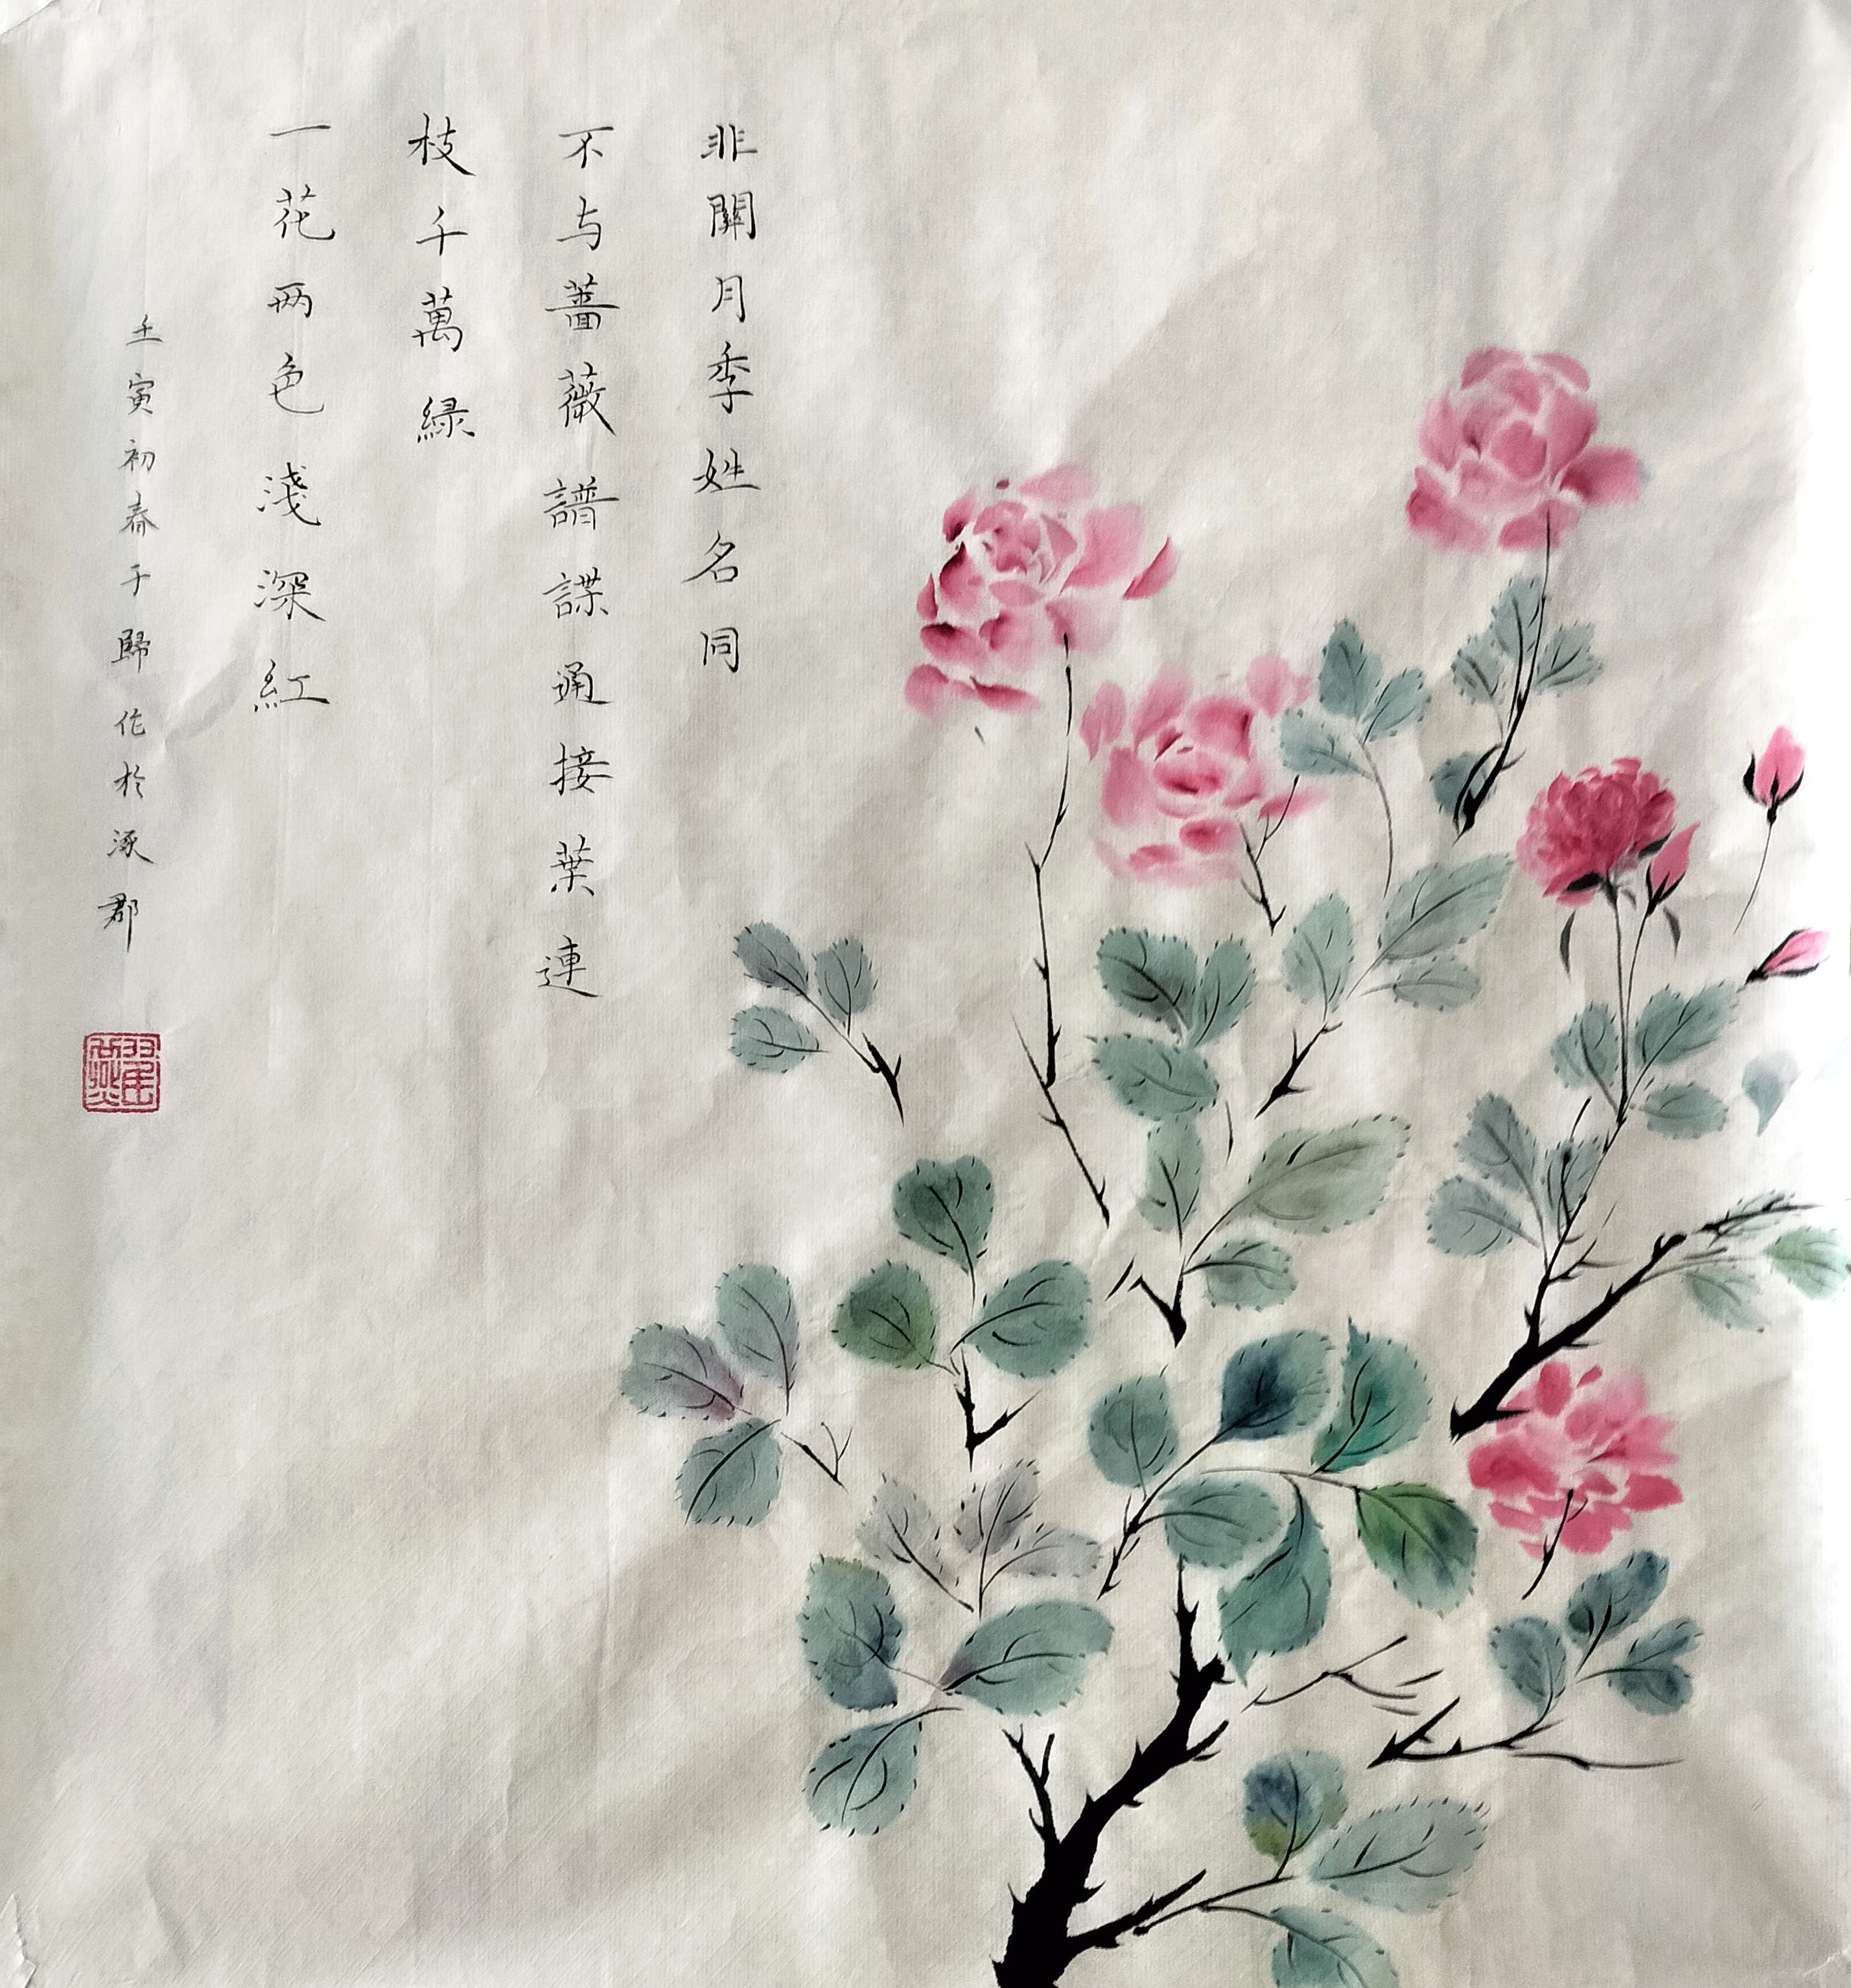 非關月季姓名同
不与薔薇譜諜通接葉連
枝千萬緑
一花两色淺深紅
壬寅初春于歸作於涿郡